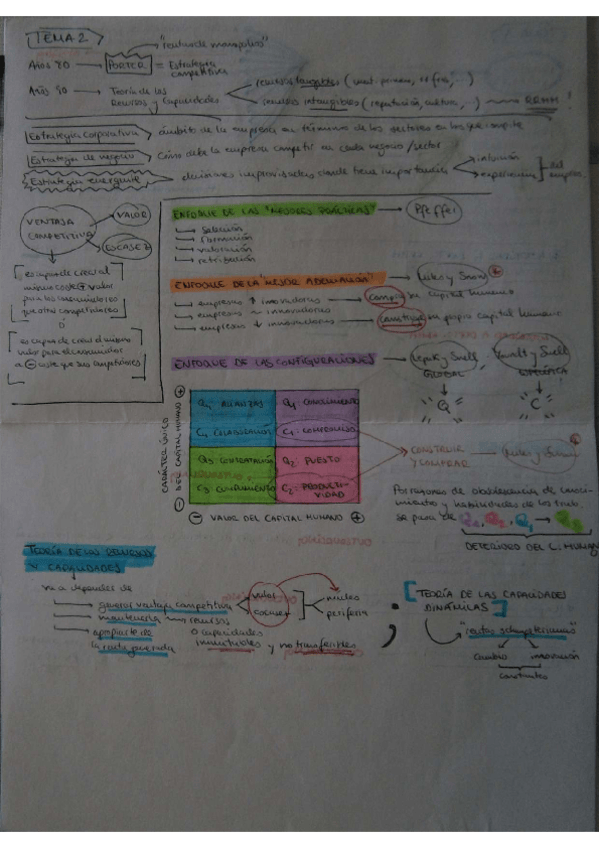 TEMA 2
"rentas de monopolio"
Años 80 → PORTER = Estrategia competitiva
Años 90 → Teoría de los Recursos y Capacidades
recursos tangibles (
recursos intangibles (reputación, cultura, ...) RRHH!
Estrategia corporativa ámbito de la empresa en términos de los sectores en los que compite
Estrategia de negocio cómo debe la empresa competir en cada negocio/sector
Estrategia emergente decisiones improvisadas donde tiene importancia
intuición
experiencia
del
VENTAJA COMPETITIVA
VALOR
ESCASEZ
es capaz de crear al mismo coste + valor para los consumidores que otros competidores
O
es capaz de crear el mismo valor para el consumidor a ⊖ coste que sus competidores
ENFOQUE DE LAS "MEJORES PRÁCTICAS" → Pfeffer
Selección
Formación
valoración
retribución
ENFOQUE DE LA "MEJOR ADECUACIÓN" → Miles y Snow
empresas ↑ innovadoras → compra su capital humano
empresas ~ innovadoras
empresas ↓ innovadoras → construye su propio capital humano
ENFOQUE DE LAS CONFIGURACIONES
Lepak y Snell
GLOBAL
Q
C
CARÁCTER ÚNICO DEL CAPITAL HUMANO
⊕
Q4: ALIANZAS
Q1: CONOCIMIENTO
C4: COLABORACIÓN
C1: COMPROMISO
Q3: CONTRATACIÓN
Q2: PUESTO
C3: CUMPLIMIENTO
C2: PRODUCTIVIDAD
⊖ VALOR DEL CAPITAL HUMANO ⊕
CONSTRUIR Y COMPRAR
Miles y Snow
Por razones de obsolescencia de conocimientos y habilidades de los trab. se pasa de
DETERIORO DEL C. HUMANO
TEORÍA DE LOS RECURSOS Y CAPACIDADES
va a depender de
generar ventaja competitiva
valor
escasez
núcleo
periferia
mantenerla recursos o capacidades inimitables y no transferibles
apropiarse de la renta generada
[TEORÍA DE LAS CAPACIDADES DINÁMICAS]
"rentas schumpeterianas"
cambio innovación
constantes